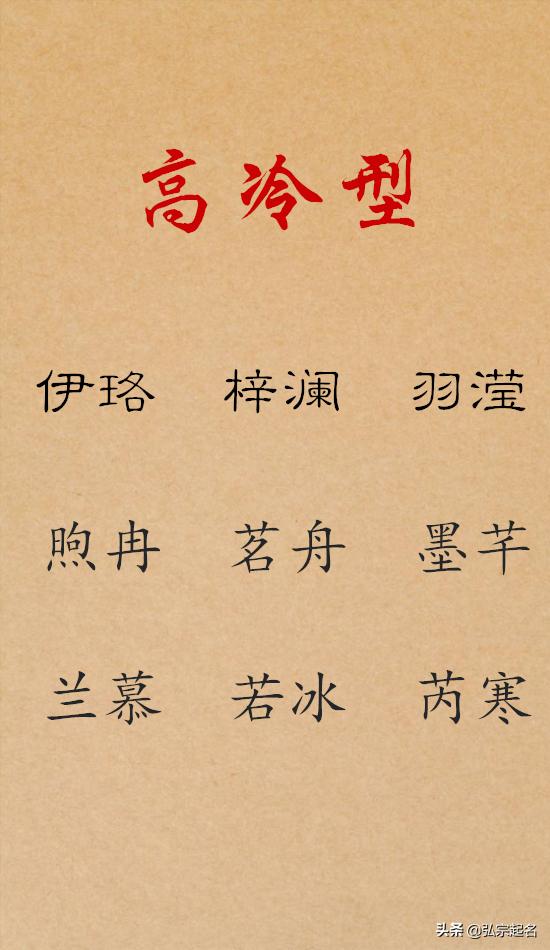 高冷型
伊珞 梓澜 羽滢
煦冉 茗舟 墨芊
兰慕 若冰 芮寒
头条 @弘宗起名